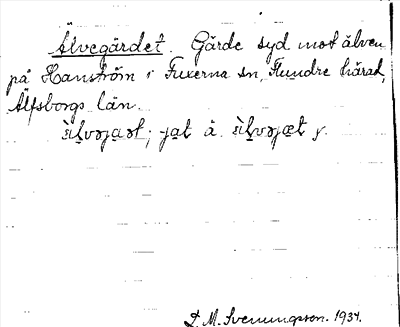 Älvegärdet. Gärde syd mot älven
på Hanström i Fuxerna sn, Flundre härad,
Älfsborgs län.
D. M. Svenningson. 1934.